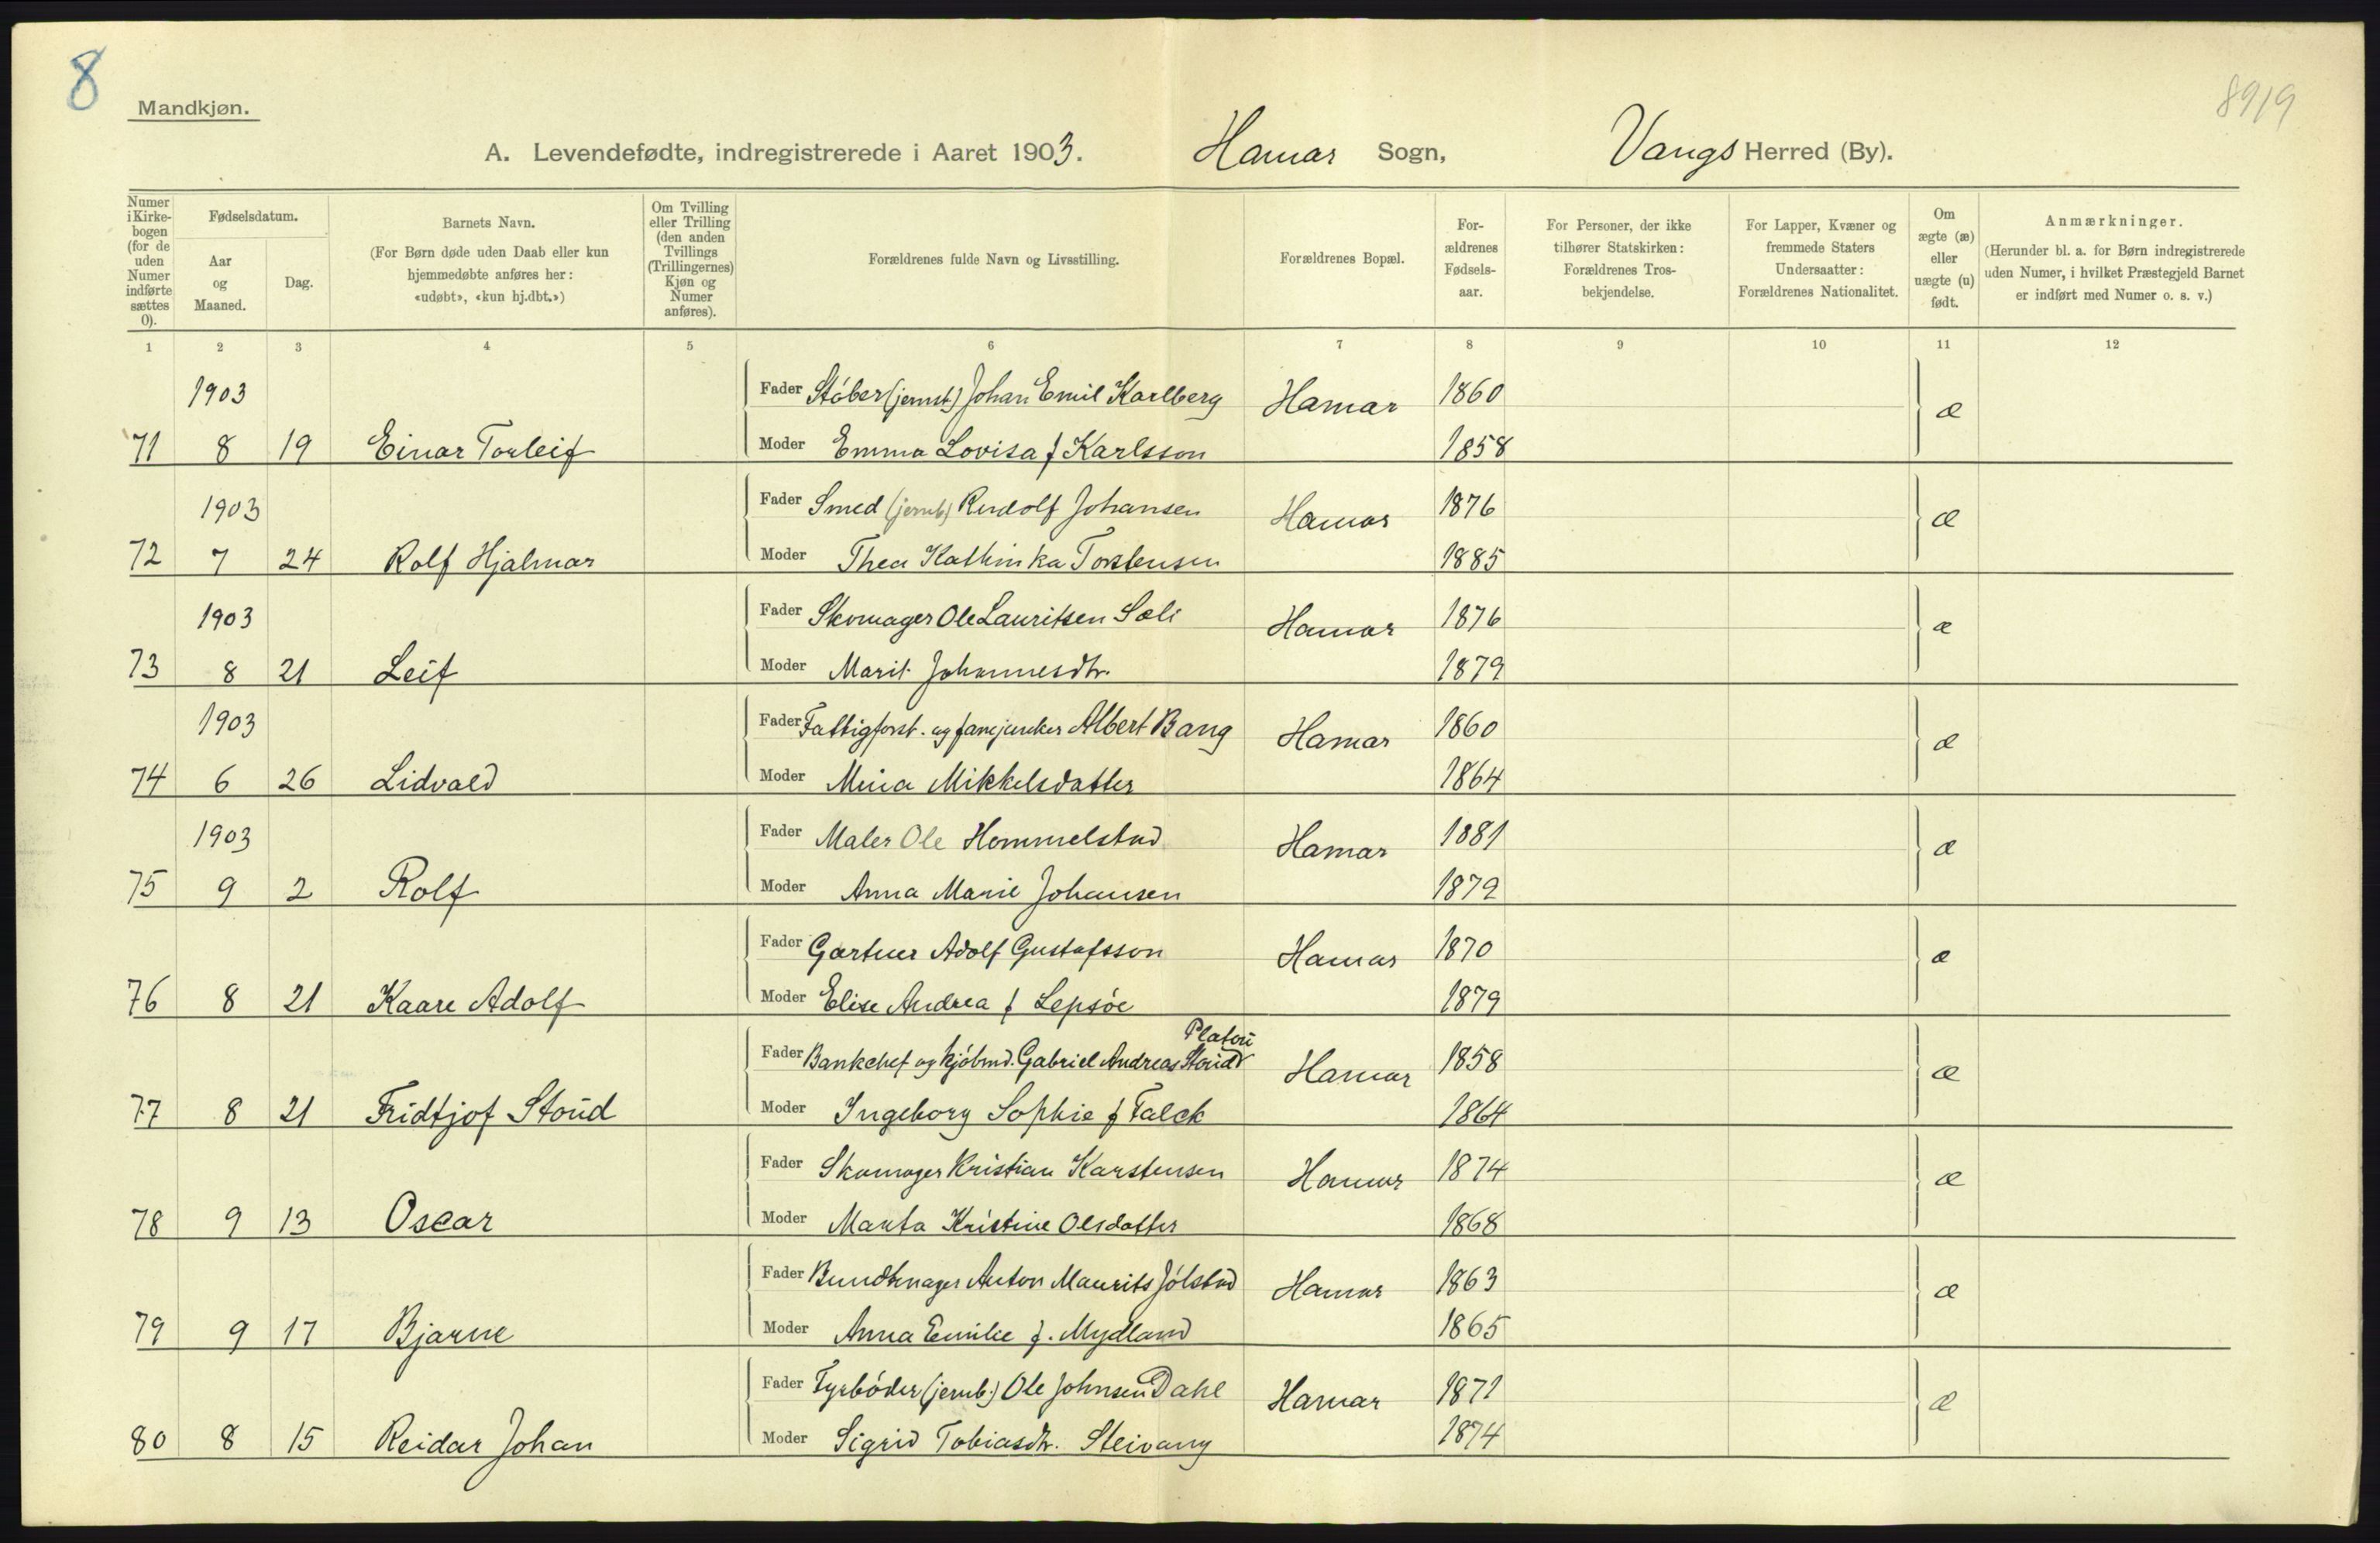 8
8919
Mandkjøn.
A. Levendefødte, indregistrerede i Aaret 1903. Hamar Sogn, Vangs Herred (By).
Numer i Kirkebogen (for de uden Numer indførte sættes 0).
Fødselsdatum.
Aar og Maaned.
Dag.
Barnets Navn.
(For Børn døde uden Daab eller kun hjemmedøbte anføres her: «udøbt», «kun hj.dbt.»)
Om Tvilling eller Trilling (den anden Tvillings (Trillingernes) Kjøn og Numer anføres).
Forældrenes fulde Navn og Livsstilling.
Forældrenes Bopæl.
Forældrenes Fødselsaar.
For Personer, der ikke tilhører Statskirken: Forældrenes Trosbekjendelse.
For Lapper, Kvæner og fremmede Staters Undersaatter: Forældrenes Nationalitet.
Om ægte (æ) eller uægte (u) født.
Anmærkninger.
(Herunder bl. a. for Børn indregistrerede uden Numer, i hvilket Præstegjeld Barnet er indført med Numer o. s. v.)
1 2 3 4 5 6 7 8 9 10 11 12
1903 Fader Støber (jernst.) Johan Emil Karlberg Hamar 1860 æ
71 8 19 Einar Torleif Moder Emma Lovisa f Karlsson 1858
1903 Fader Smed (jernb) Rudolf Johansen Hamar 1876 æ
72 7 24 Rolf Hjalmar Moder Thea Kathinka Torstensen 1885
1903 Fader Skomager Ole Lauritsen Sæli Hamar 1876 æ
73 8 21 Leif Moder Marit Johannesdtr. 1879
1903 Fader Fattigforst. og fanejunker Albert Bang Hamar 1860 æ
74 6 26 Lidvald Moder Mina Mikkelsdatter 1864
1903 Fader Maler Ole Hommelstad Hamar 1881 æ
75 9 2 Rolf Moder Anna Marie Johansen 1879
Fader Gartner Adolf Gustafsson Hamar 1870 æ
76 8 21 Kaare Adolf Moder Elise Andrea f Lepsøe 1879
Platou
Fader Bankchef og kjøbmd. Gabriel Andreas Stoud Hamar 1858 æ
77 8 21 Fridtjof Stoud Moder Ingeborg Sophie f Falck 1864
Fader Skomager Kristian Karstensen Hamar 1874 æ
78 9 13 Oscar Moder Marta Kristine Olsdatter 1868
Fader Bundtmager Anton Maurits Jølstad Hamar 1863 æ
79 9 17 Bjarne Moder Anna Emilie f. Mydland 1865
Fader Fyrbøder (jernb.) Ole Johnsen Dahl Hamar 1871 æ
80 8 15 Reidar Johan Moder Sigrid Tobiasdtr. Steivang 1874